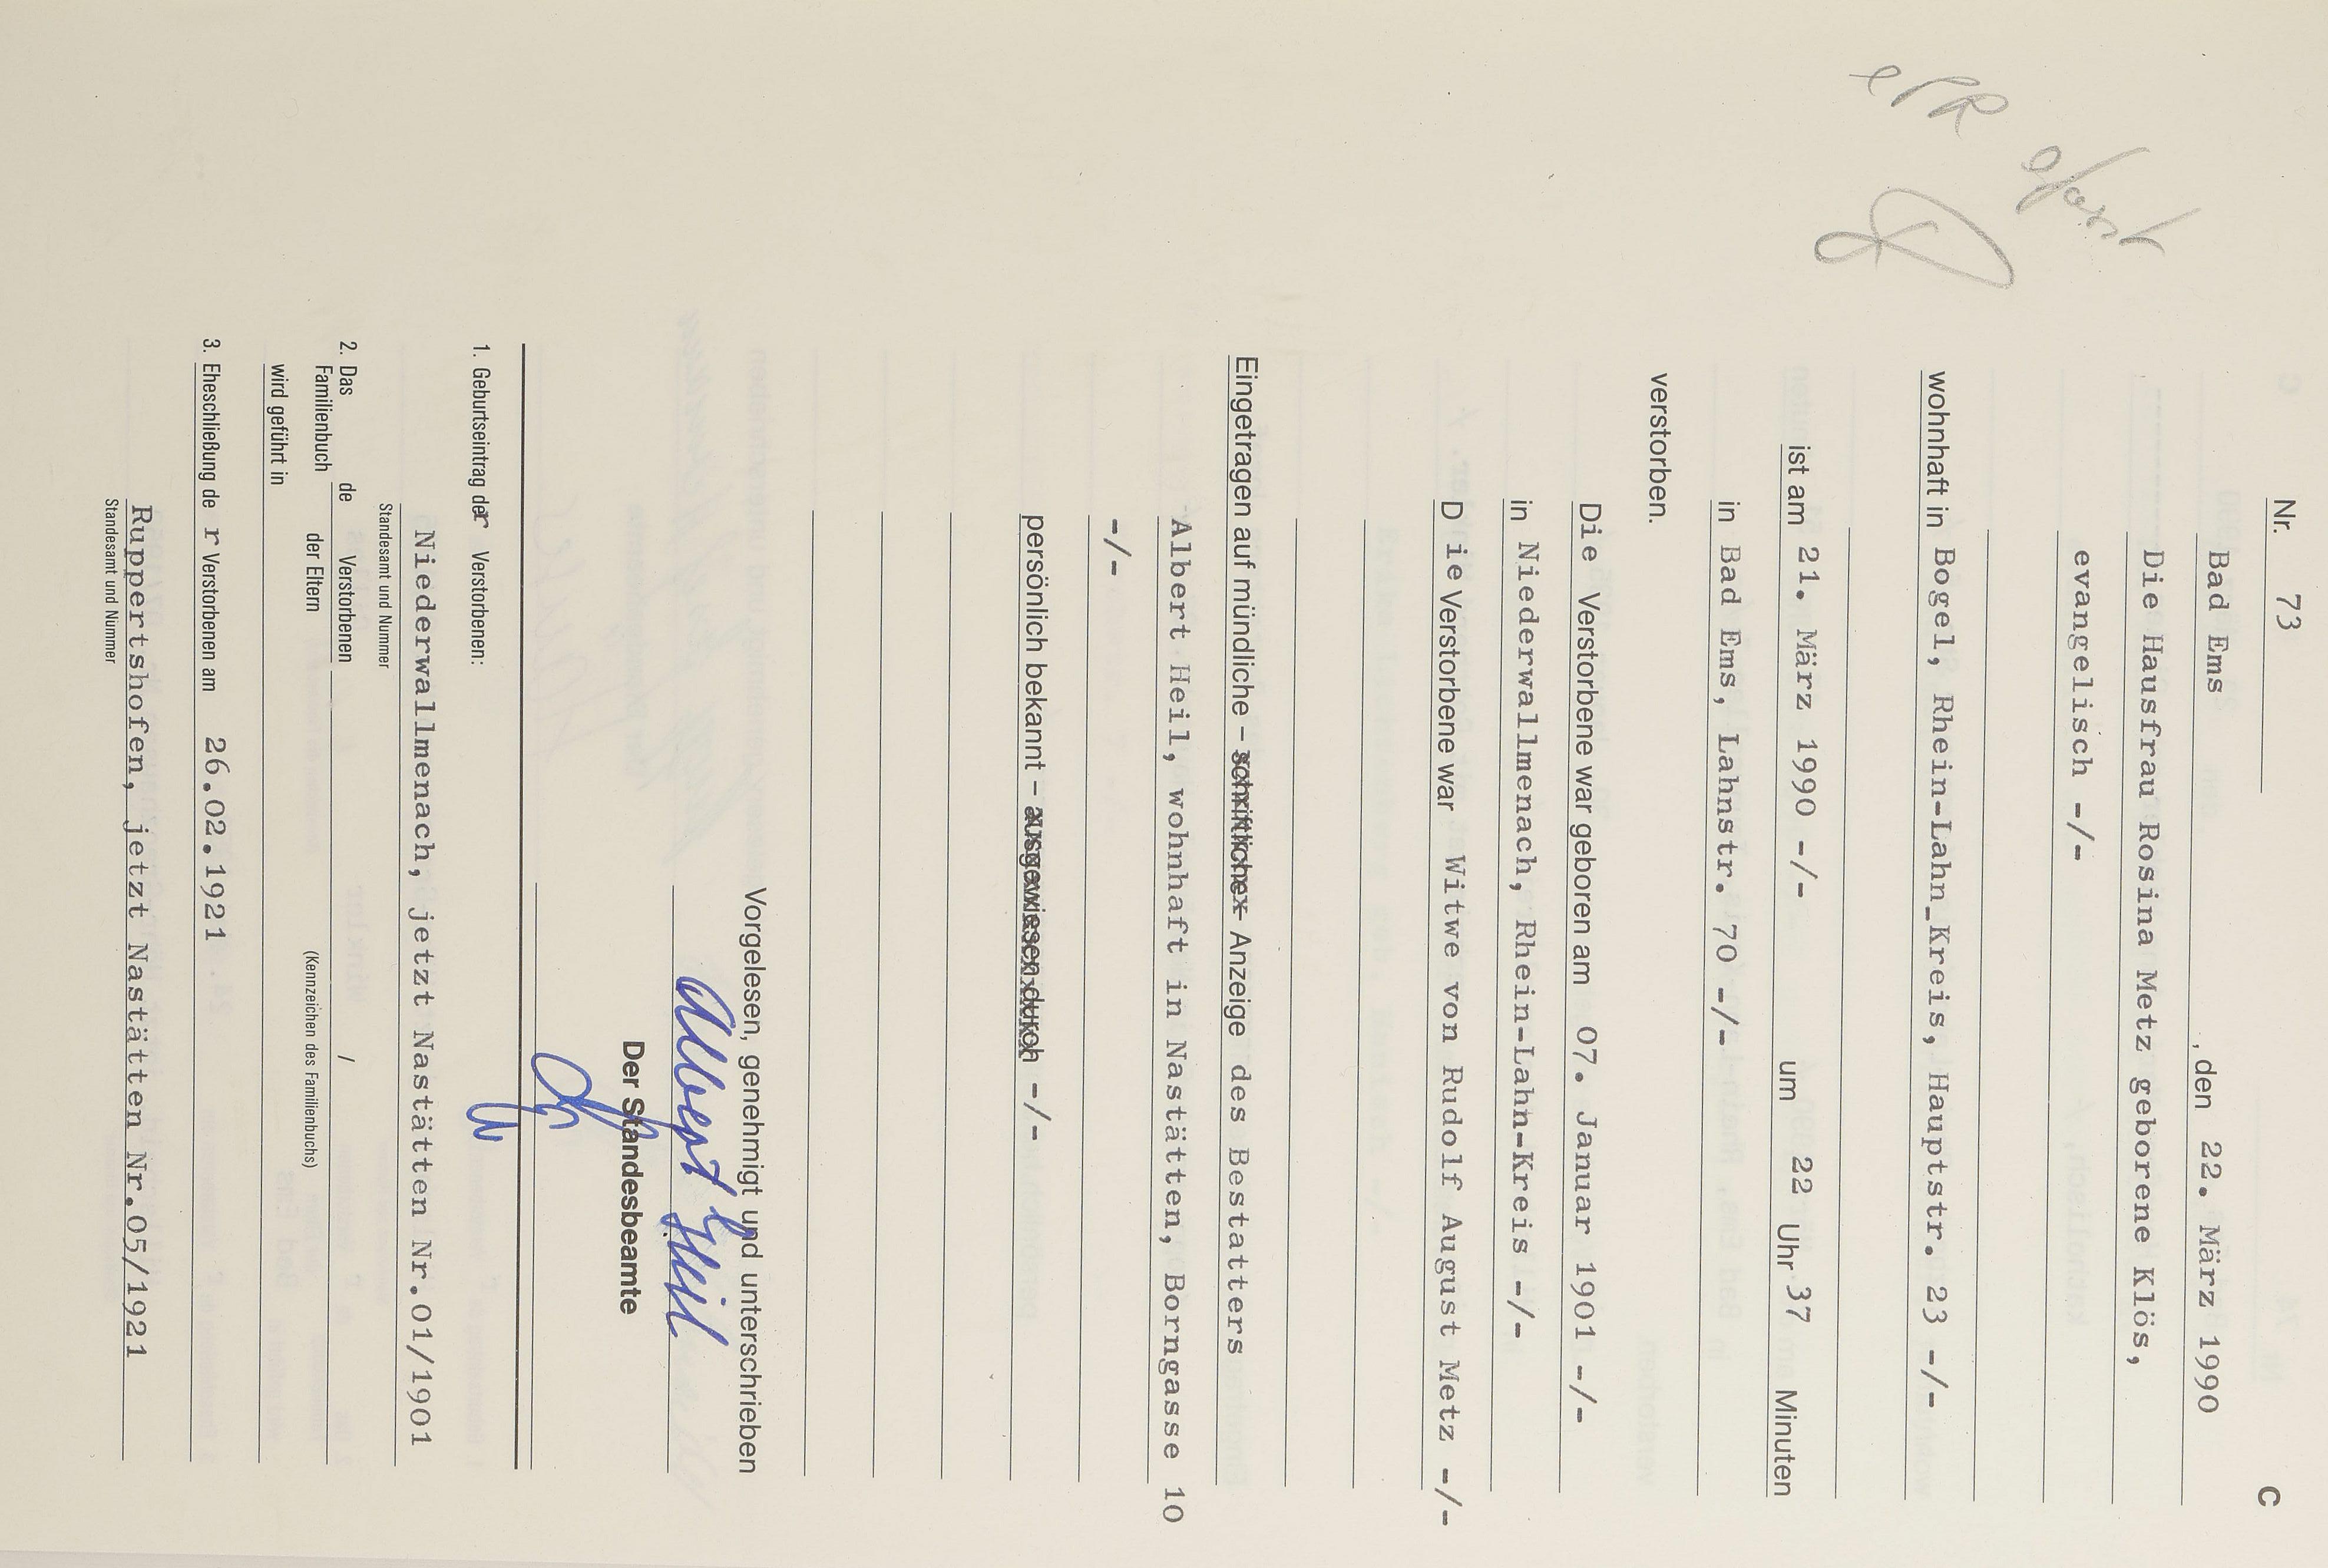 C
Nr. 73
Bad Ems , den 22. März 1990
Die Hausfrau Rosina Metz geborene Klös,
evangelisch -/-
wohnhaft in Bogel, Rhein-Lahn_Kreis, Hauptstr. 23 -/-
ist am 21. März 1990 -/- um 22 Uhr 37 Minuten
in Bad Ems, Lahnstr. 70 -/-
verstorben.
Die Verstorbene war geboren am 07. Januar 1901 -/-
in Niederwallmenach, Rhein-Lahn-Kreis -/-
D ie Verstorbene war Witwe von Rudolf August Metz -/-
Eingetragen auf mündliche – schriftliche – Anzeige des Bestatters
Albert Heil, wohnhaft in Nastätten, Borngasse 10
-/-
persönlich bekannt – ausgewiesen durch -/-
Vorgelesen, genehmigt und unterschrieben
Albert Heil
Der Standesbeamte
1. Geburtseintrag der Verstorbenen:
Niederwallmenach, jetzt Nastätten Nr.01/1901
Standesamt und Nummer
2. Das Familienbuch de Verstorbenen /
der Eltern
wird geführt in (Kennzeichen des Familienbuchs)
3. Eheschließung de r Verstorbenen am 26.02.1921
Ruppertshofen, jetzt Nastätten Nr.05/1921
Standesamt und Nummer